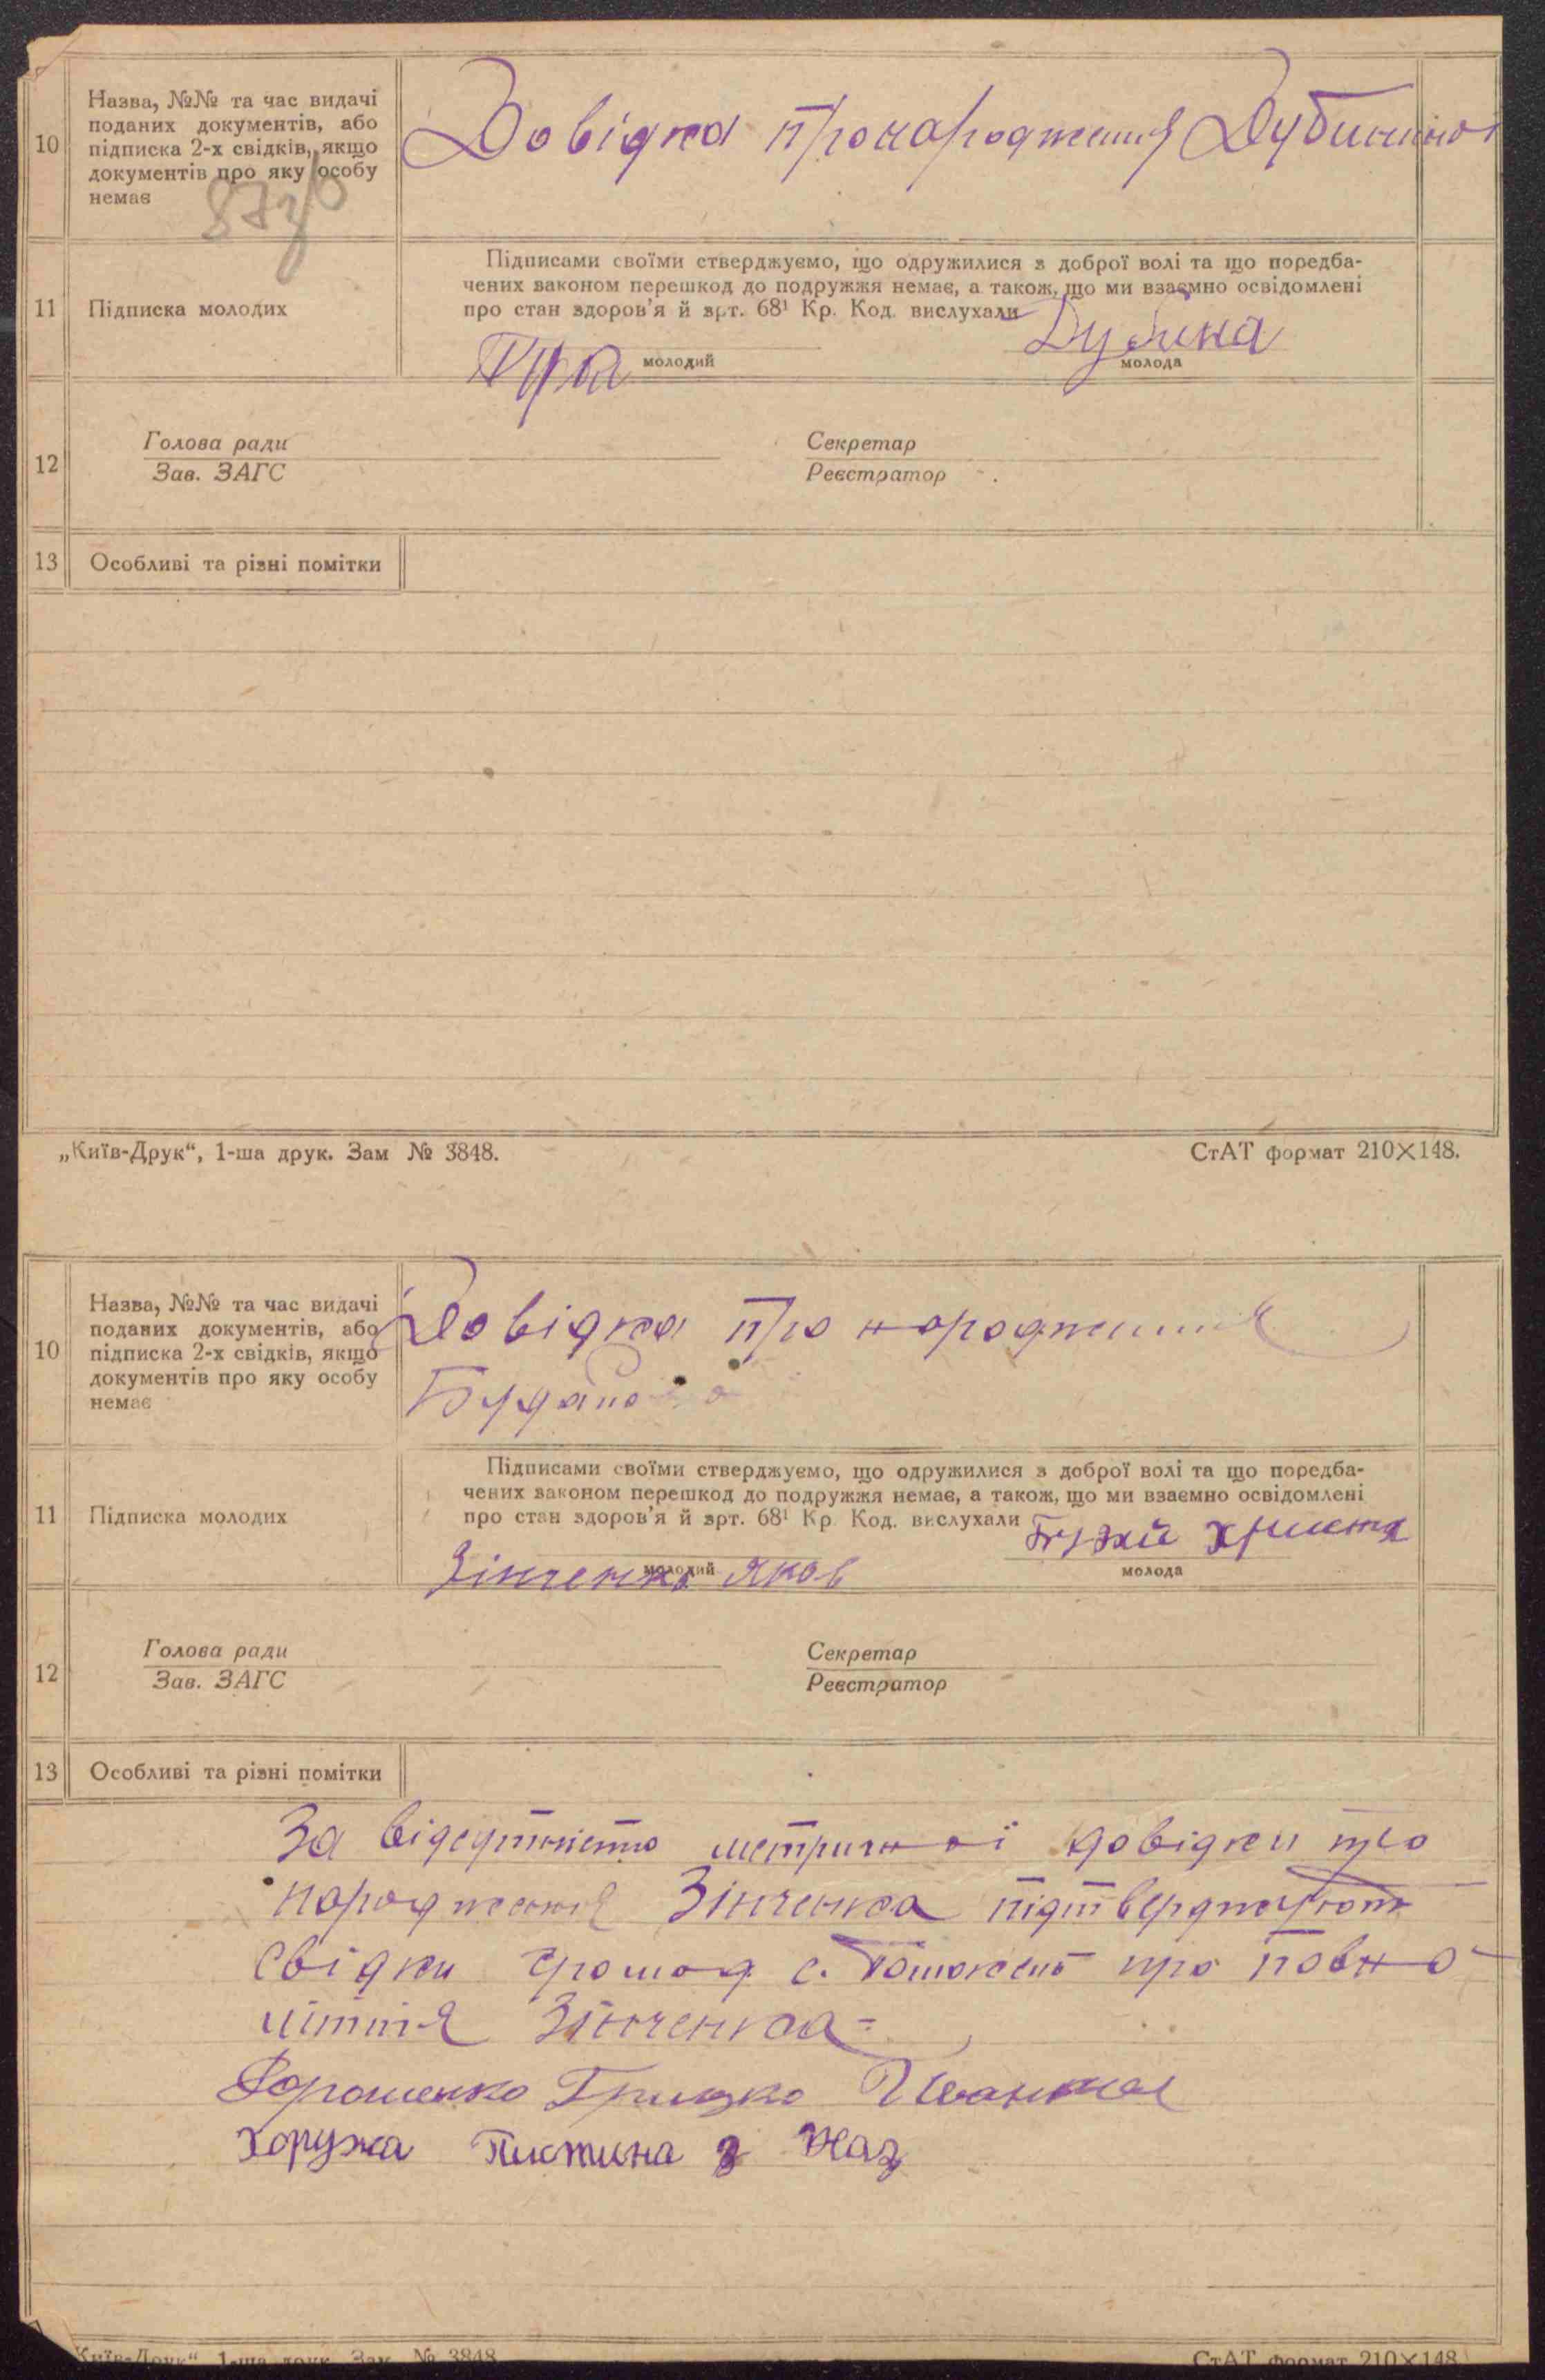 10
Назва, №№ та час видачі
поданих документів, або
підписка 2-х свідків, якщо
документів про яку особу
немає
Довідка про народження Дубини
11
Підписка молодих
Підписами своїми стверджуємо, що одружилися з доброї волі та що передба-
чених законом перешкод до подружжя немає, а також, що ми взаємно освідомлені
про стан здоров'я й арт. 68¹ Кр. Код. вислухали
Дубина
молодий
молода
12
Голова ради
Зав. ЗАГС
Секретар
Реєстратор
13
Особливі та різні помітки
„Київ-Друк“, 1-ша друк. Зам № 3848.
СтАТ формат 210×148.
10
Назва, №№ та час видачі
поданих документів, або
підписка 2-х свідків, якщо
документів про яку особу
немає
Довідка про народження
11
Підписка молодих
Підписами своїми стверджуємо, що одружилися з доброї волі та що передба-
чених законом перешкод до подружжя немає, а також, що ми взаємно освідомлені
про стан здоров'я й арт. 68¹ Кр. Код. вислухали
Христя
Зінченко Яков
молодий
молода
12
Голова ради
Зав. ЗАГС
Секретар
Реєстратор
13
Особливі та різні помітки
За відсутністю метричної довідки про
народження Зінченка підтверджують
свідки громад с. про повно
ліття Зінченка
Дорошенко Грицко
Хоружа Пистина
„Київ-Друк“ 1-ша друк. Зам № 3848
СтАТ формат 210×148